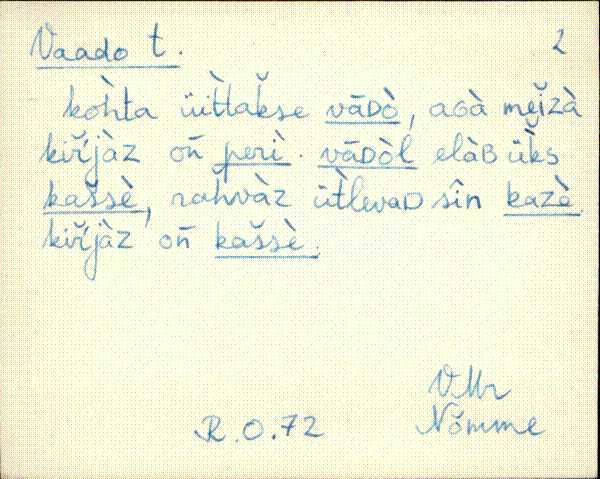 Vaado t. 2
kòh̀ta üìt̀takse vāᴅò, aɢà mĕĭzà
kiŕjàz oń perì. vāᴅòl elàʙ ük̆s
kaššè, rahvàz ütlevaᴅ sîn kazè.
kiŕjàz oń kaššè.
VMr
R.O.72 Nõmme